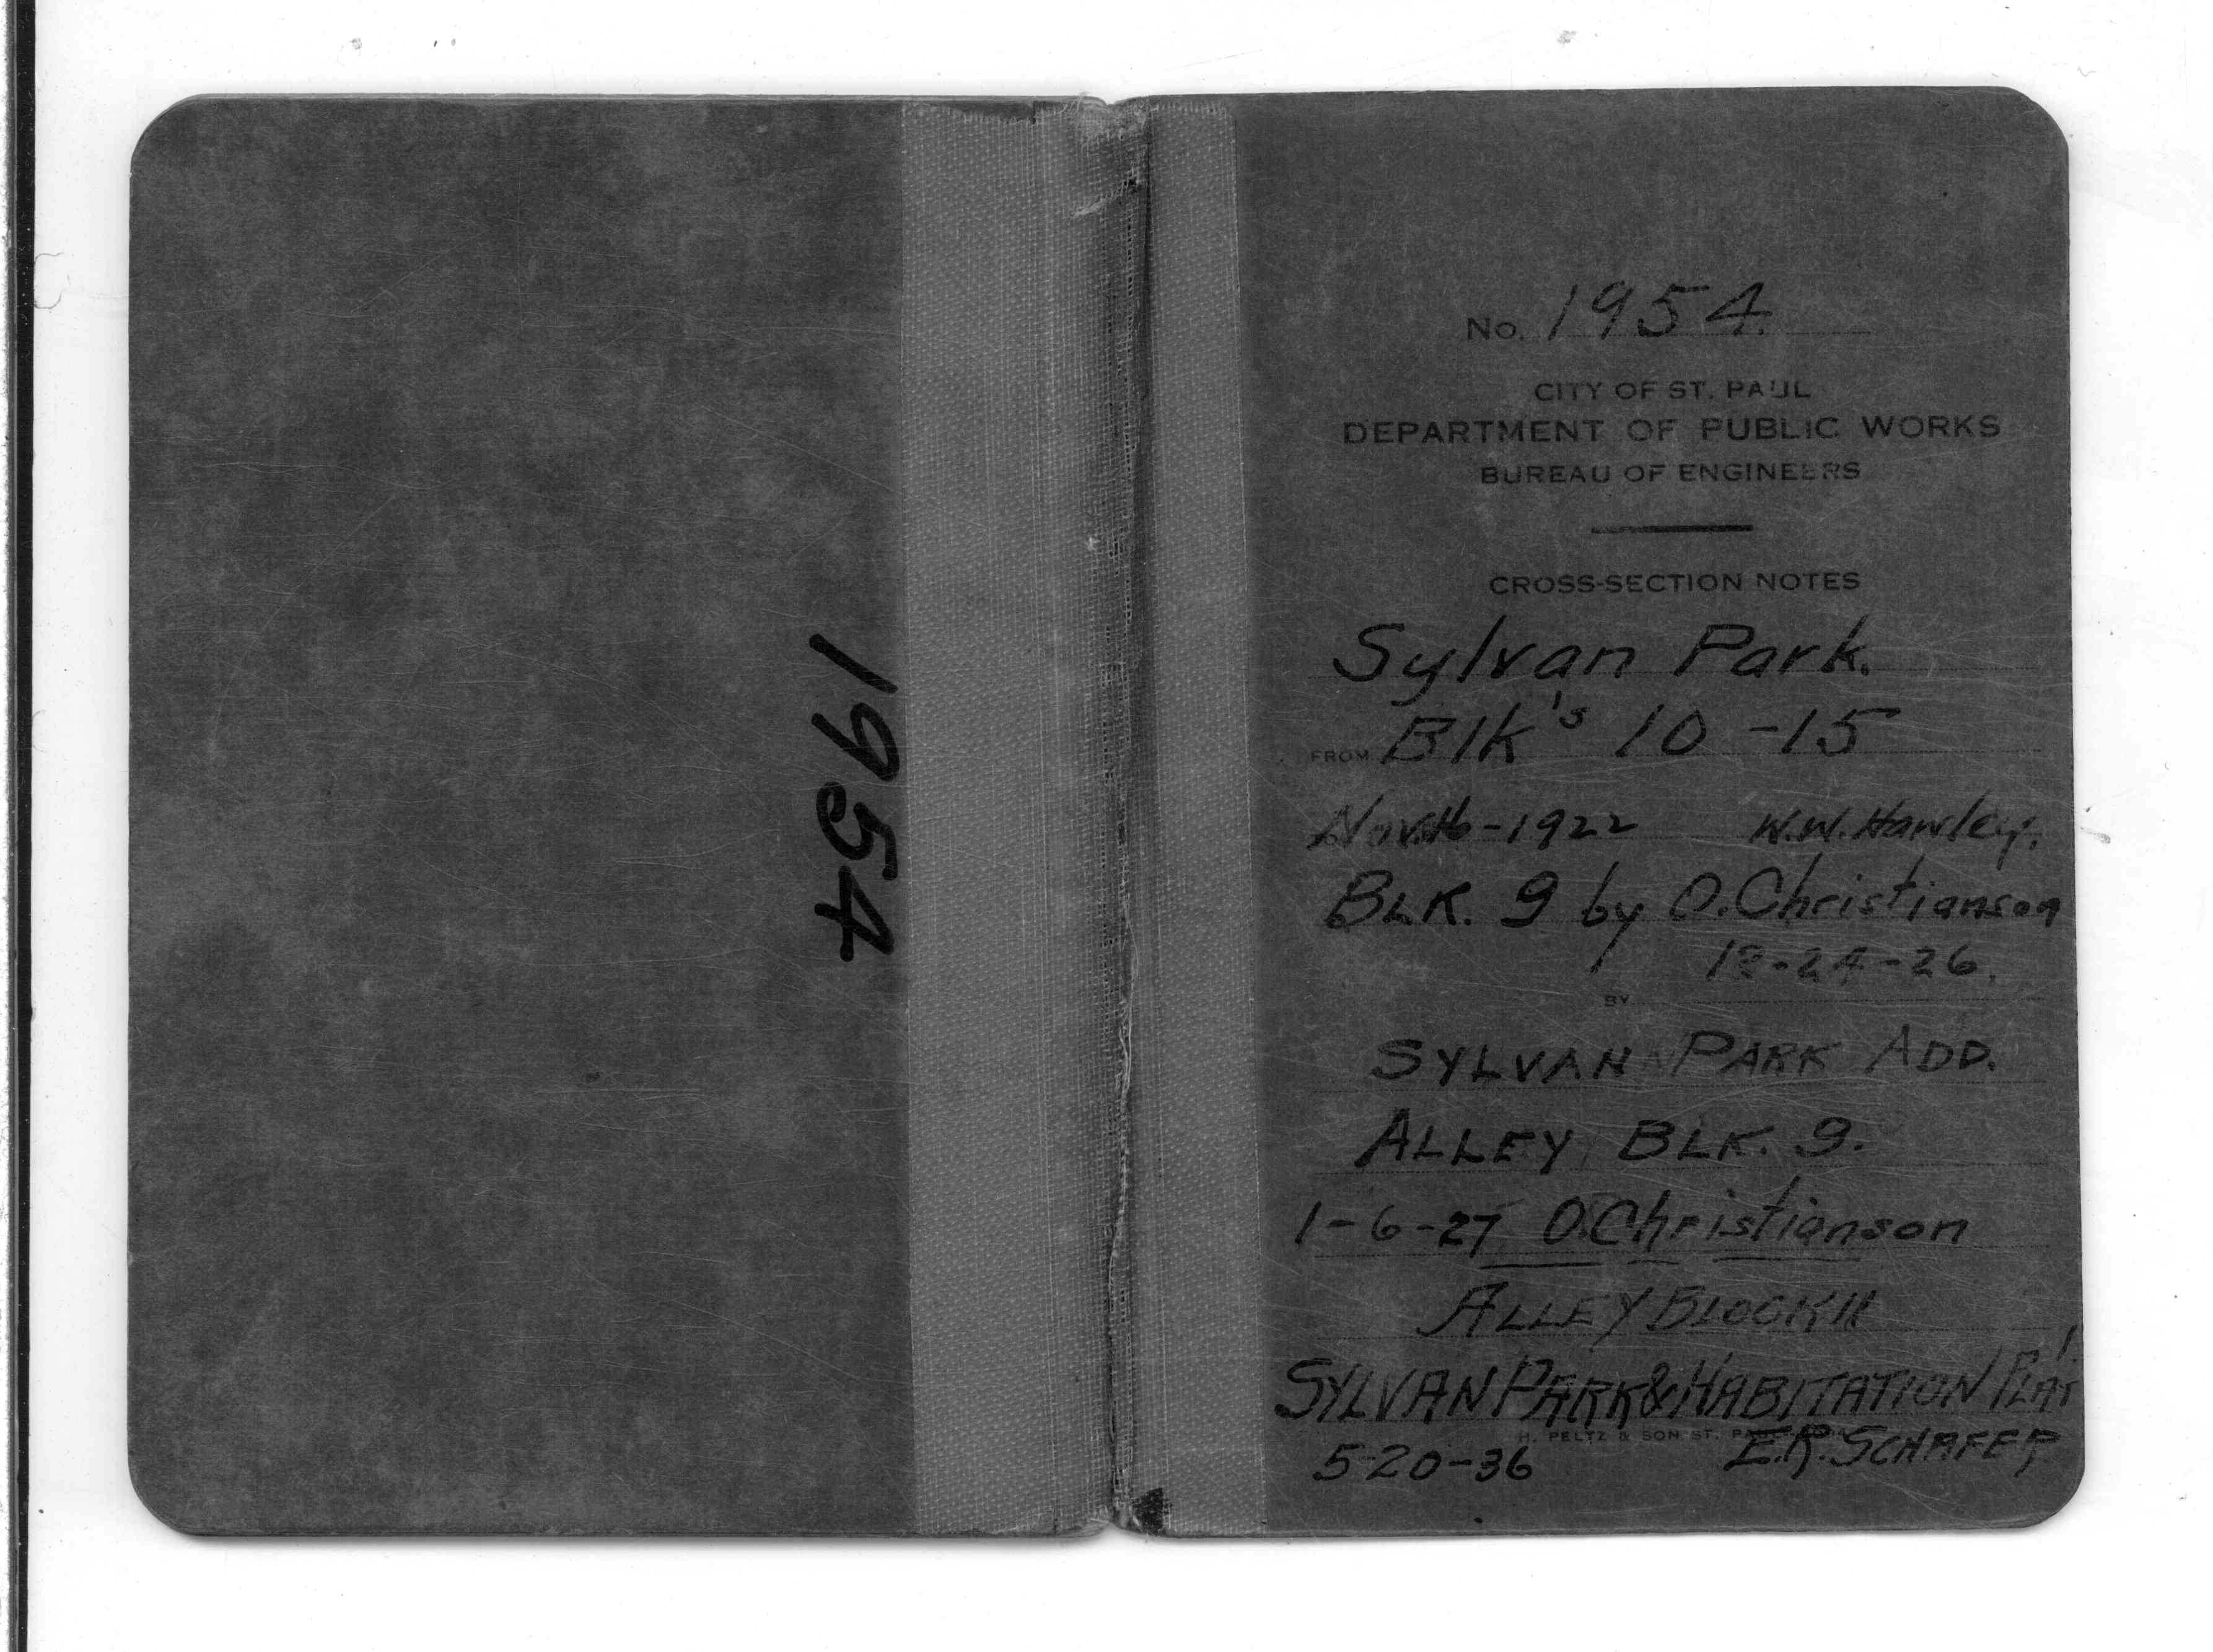 1954
No. 1954.
CITY OF ST. PAUL
DEPARTMENT OF PUBLIC WORKS
BUREAU OF ENGINEERS
CROSS-SECTION NOTES
Sylvan Park.
FROM Blk's 10-15
Nov. 16-1922 W.W. Hawley.
BLK. 9 by O. Christianson
12-24-26.
BY
SYLVAN PARK ADD.
ALLEY, BLK. 9.
1-6-27 O. Christianson
ALLEY BLOCK 11
SYLVAN PARK & HABITATION PLAT
H. PELTZ & SON ST.
5-20-36 E.R. SCHAFER